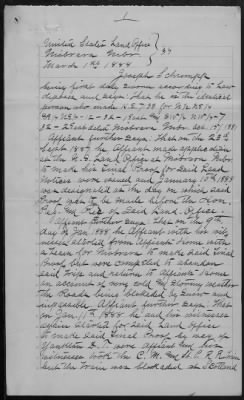 1
United States Land Office
Niobrara Nebr.
March 1st 1888
Joseph Schrempp
being first duly sworn according to law
deposes and says that he is the identical
person who made H.E. 738 for
Affiant further says that on the 23d
Sept 1887 he affiant made application
at the U.S. Land Office at Niobrara Nebr.
to make his final Proof for said land
Notice were issued and January 10th 1888
was designated as the day on which said
Proof was to be made before the Hon.
Reg. and Rec of said Land Office.
Affiant further says that on the 9th
day of Jan 1888 he affiant with his wit-
nesses started from affiants home with
a team for Niobrara to make said final
Proof but were compelled to abandon
said trip and return to affiants home
on account of very cold and stormy weather
the Roads being blockaded by snow and
impassable. Affiant further says that
on Jan 11th 1888 he and his witnesses
again started for said Land Office
to make said final Proof by way of
Yankton D.T. were affiant and his
witnesses took the C. M. and St. P. R. R. train
but the train was blockaded at Scotland